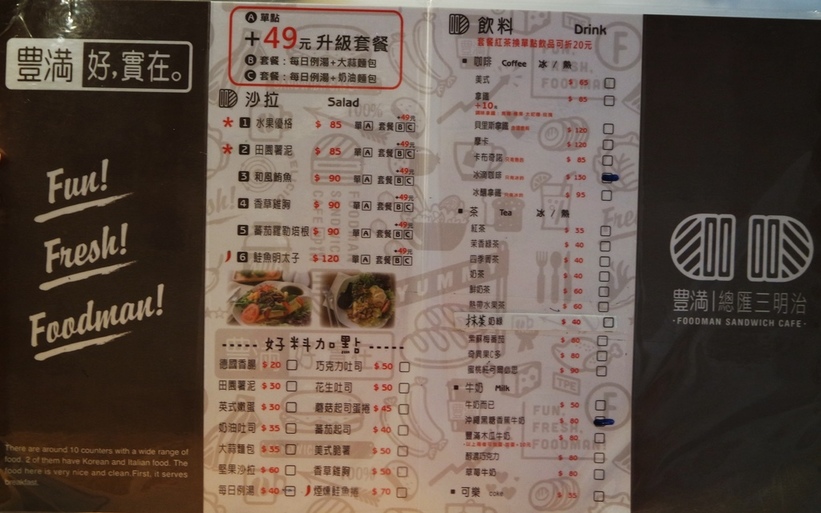 豐滿 好,實在。
Fun!
Fresh!
Foodman!
There are around 10 counters with a wide range of
food. 2 of them have Korean and Italian food. The
food here is very nice and clean.First, it serves
breakfast.
A 單點
+49元 升級套餐
B 套餐:每日例湯+大蒜麵包
C 套餐:每日例湯+奶油麵包
沙拉 Salad
* 1 水果優格 $ 85 單A 套餐BC +49元
* 2 田園薯泥 $ 85 單A 套餐BC +49元
3 和風鮪魚 $ 90 單A 套餐BC +49元
4 香草雞胸 $ 90 單A 套餐BC +49元
5 蕃茄羅勒培根 $ 90 單A 套餐BC +49元
6 鮭魚明太子 $ 120 單A 套餐BC +49元
好料加點
德國香腸 $ 20 巧克力吐司 $ 50
田園薯泥 $ 30 花生吐司 $ 50
英式嫩蛋 $ 30 蘑菇起司蛋捲 $ 45
奶油吐司 $ 35 蕃茄起司 $ 40
大蒜麵包 $ 35 美式脆薯 $ 50
堅果沙拉 $ 60 香草雞胸 $ 50
每日例湯 $ 40 煙燻鮭魚捲 $ 70
飲料 Drink
套餐紅茶換單點飲品可折20元
咖啡 Coffee 冰 / 熱
美式 $ 65
拿鐵 $ 85
+10元
貝里斯拿鐵 $ 120
摩卡 $ 120
卡布奇諾 $ 85
冰滴咖啡 $ 150
冰釀拿鐵 $ 95
茶 Tea 冰 / 熱
紅茶 $ 35
茉香綠茶 $ 40
四季青茶 $ 40
奶茶 $ 40
鮮奶茶 $ 60
熱帶水果茶 $ 60
抹茶奶綠 $ 60
紫蘇梅番茄 $ 80
奇異果C多 $ 80
$ 90
牛奶 Milk
牛奶而已 $ 50
沖繩黑糖香蕉牛奶 $ 80
豐滿木瓜牛奶 $ 80
醇濃巧克力 $ 80
草莓牛奶 $ 80
可樂 coke $ 35
豐滿|總匯三明治
-FOODMAN SANDWICH CAFE-